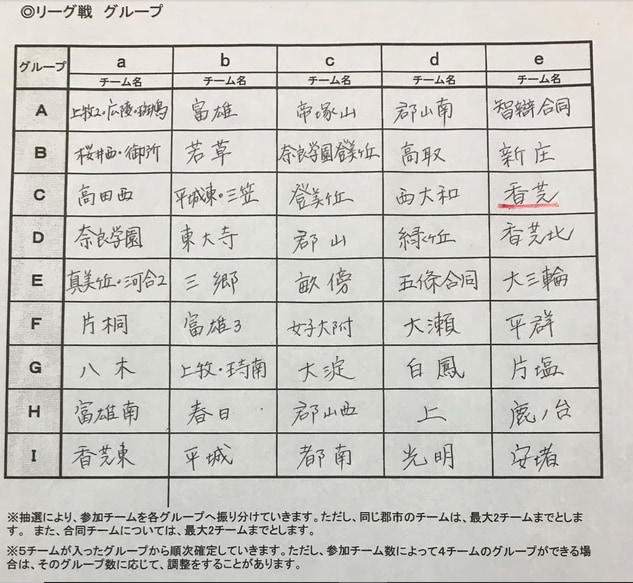 ◎リーグ戦 グループ
グループ a b c d e
チーム名 チーム名 チーム名 チーム名 チーム名
A 上牧2・広陵・斑鳩 富雄 帝塚山 郡山南 智辯合同
B 桜井西・御所 若草 奈良学園登美ヶ丘 高取 新庄
C 高田西 平城東・三笠 登美ヶ丘 西大和 香芝
D 奈良学園 東大寺 郡山 緑ヶ丘 香芝北
E 真美ヶ丘・河合2 三郷 畝傍 五條合同 大三輪
F 片桐 富雄3 女子大附 大瀬 平群
G 八木 上牧・ 大淀 白鳳 片塩
H 富雄南 春日 郡山西 上 鹿ノ台
I 香芝東 平城 都南 光明 安堵
※抽選により、参加チームを各グループへ振り分けていきます。ただし、同じ郡市のチームは、最大2チームまでとしま
す。 また、合同チームについては、最大2チームまでとします。
※5チームが入ったグループから順次確定していきます。ただし、参加チーム数によって4チームのグループができる場
合は、そのグループ数に応じて、調整をすることがあります。